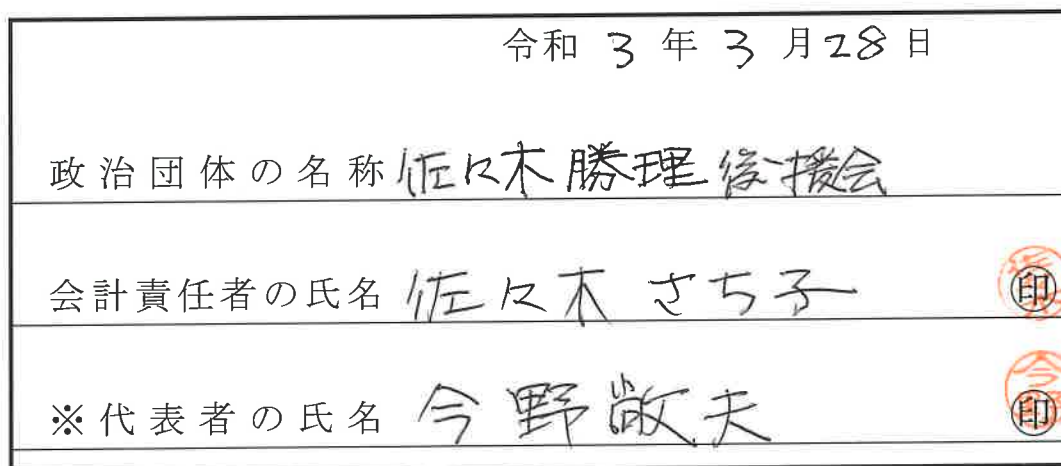 令和 3 年 3 月 28 日
政治団体の名称 佐々木勝理後援会
会計責任者の氏名 佐々木 さち子 ㊞
※代表者の氏名 今野敞夫 ㊞